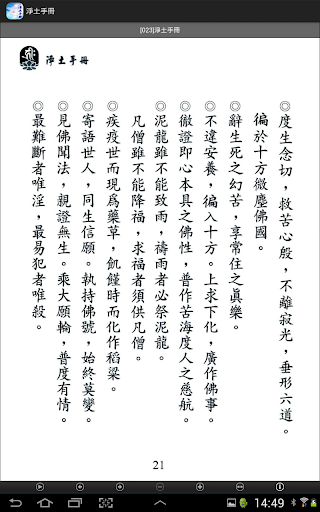 淨土手冊
[023]淨土手冊
淨土手冊
◎度生念切，救苦心殷，不離寂光，垂形六道。
徧於十方微塵佛國。
◎辭生死之幻苦，享常住之眞樂。
◎不違安養，徧入十方。上求下化，廣作佛事。
◎徹證即心本具之佛性，普作苦海度人之慈航。
◎泥龍雖不能致雨，禱雨者必祭泥龍。
凡僧雖不能降福，求福者須供凡僧。
◎疾疫世而現爲藥草，飢饉時而化作稻梁。
◎寄語世人，同生信願。執持佛號，始終莫變。
◎見佛聞法，親證無生。乘大願輪，普度有情。
◎最難斷者唯淫，最易犯者唯殺。
21
14:49